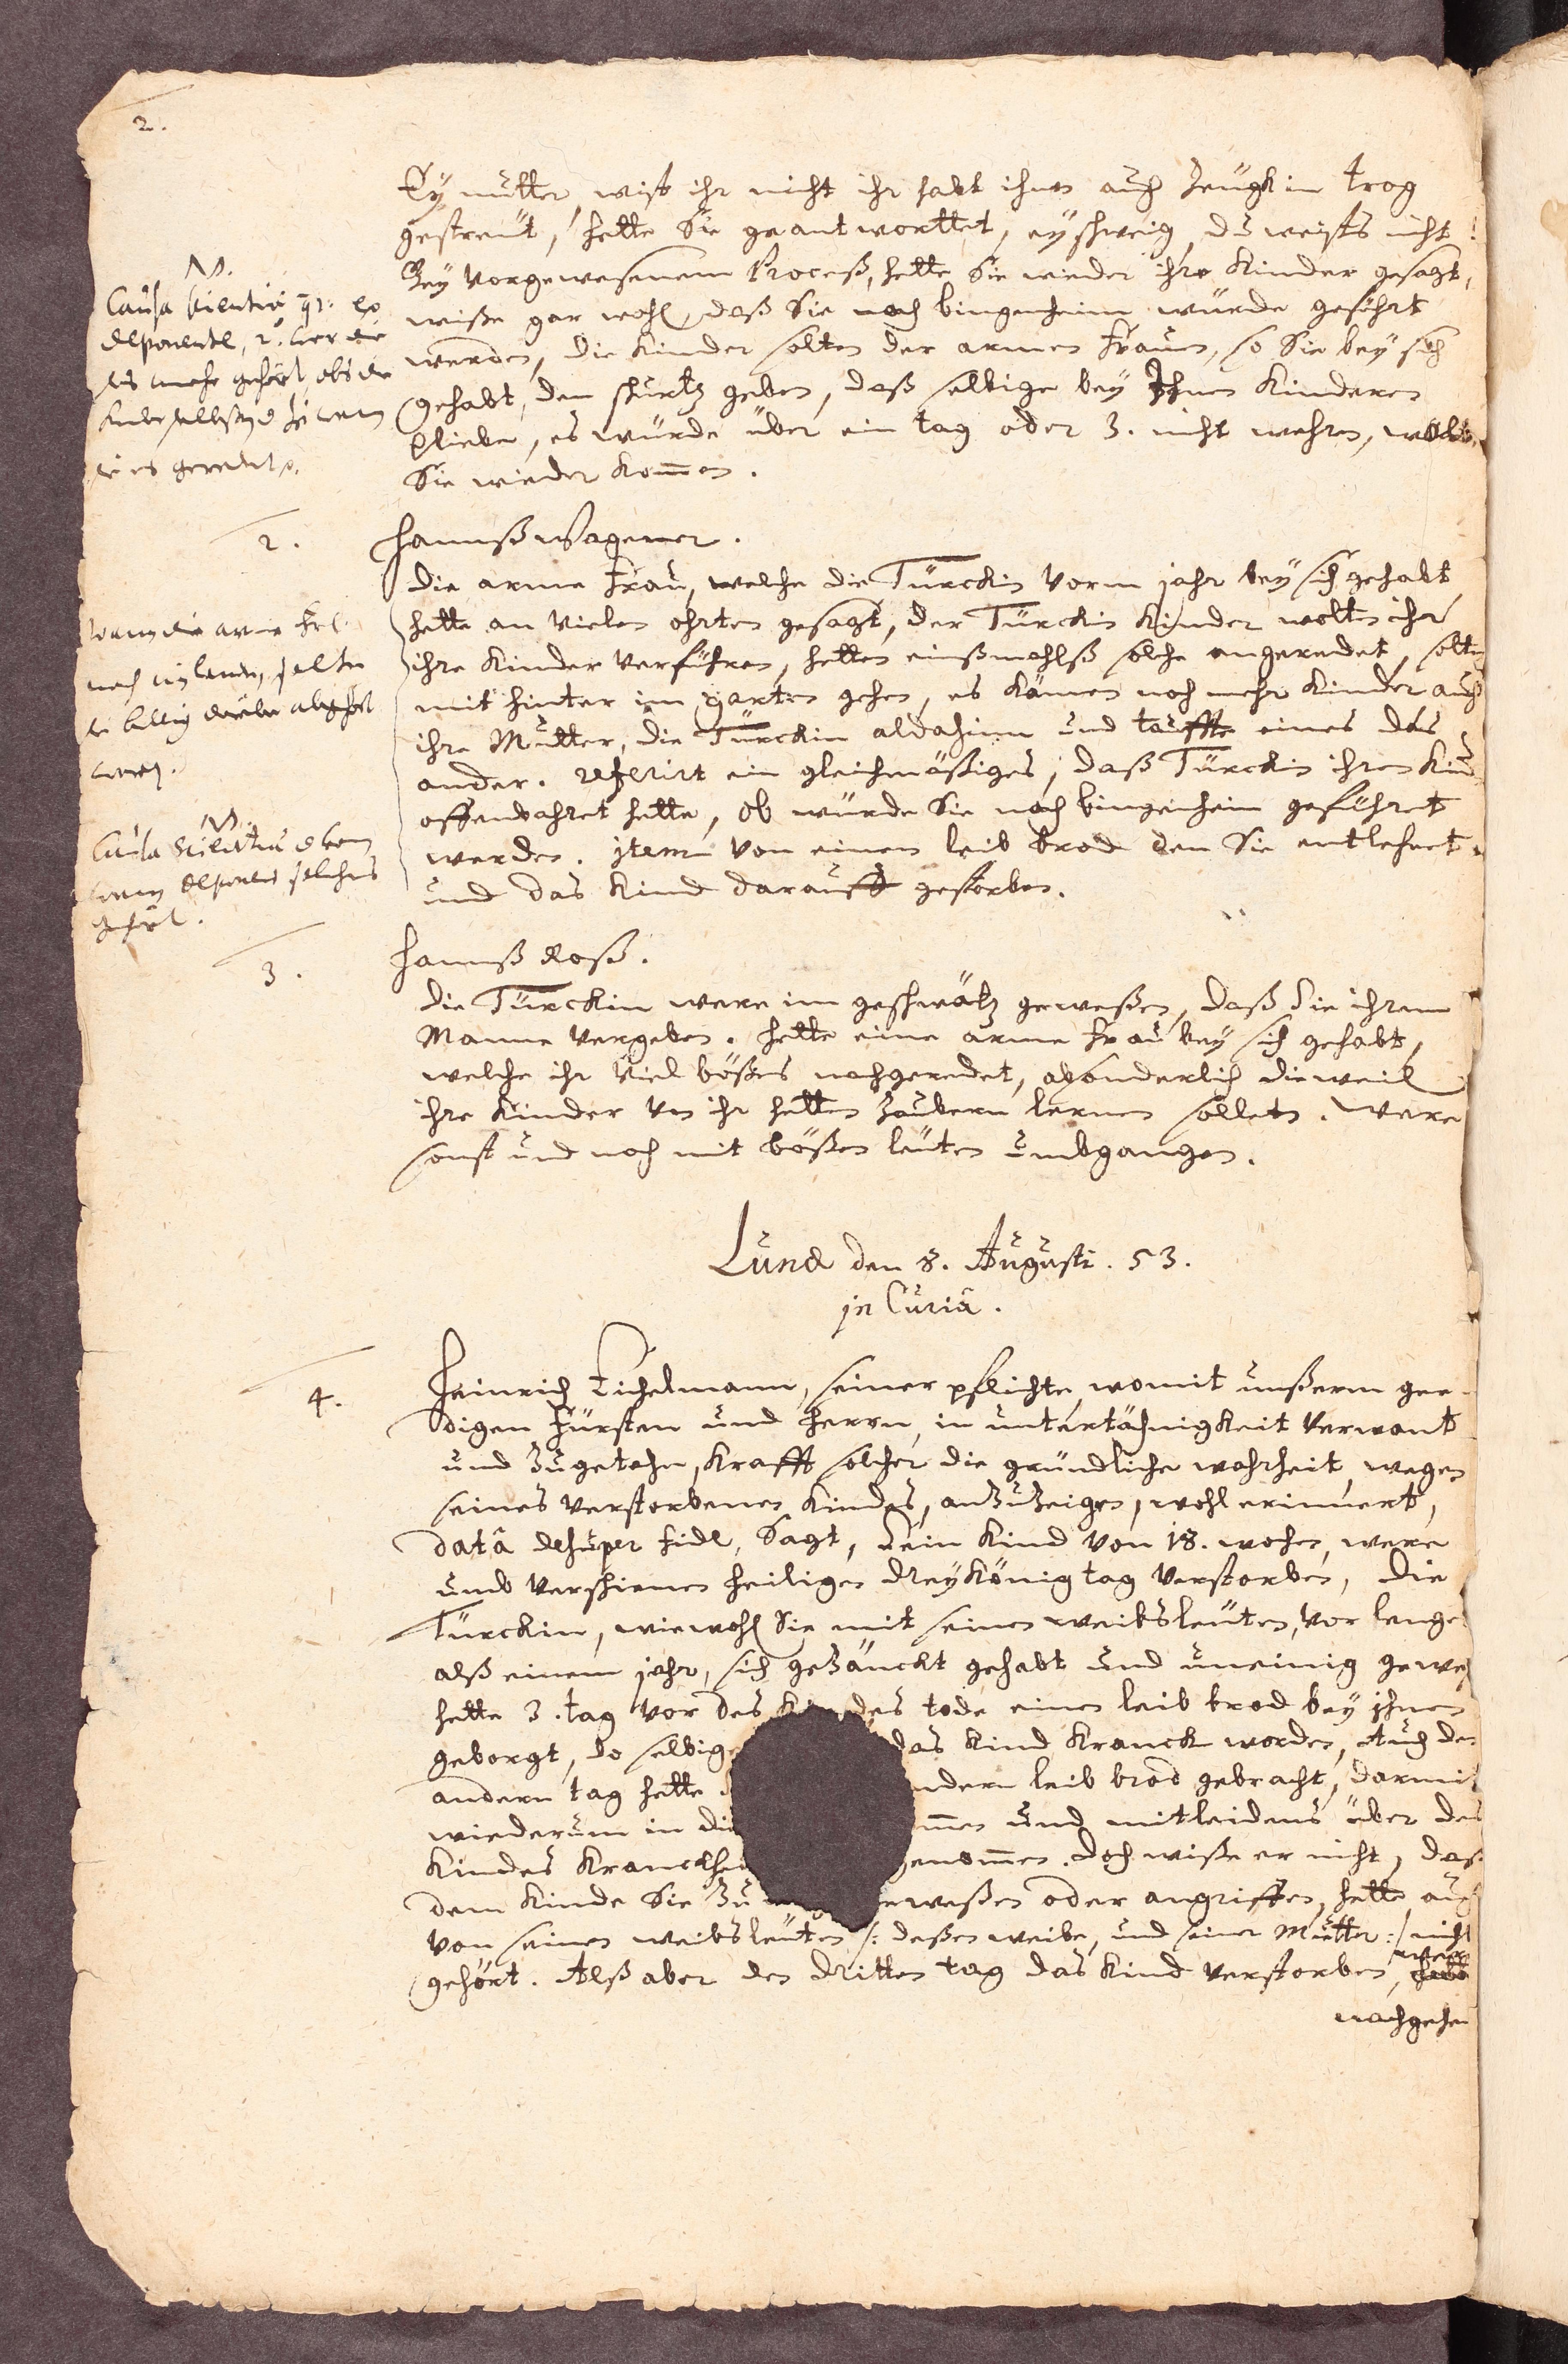 2.
Ey mutter, wist ihr nicht ihr habt ihm auch zeugk im trog
gestreüt, hette Sie geantworttet, ey schweig, du weists nicht!
Bey vorgewesenem Proceß, hette Sie wieder ihre Kinder gesagt,
wiße gar wohl, daß Sie nach bingenheim würde geführt
werden, die Kinder solten der armen frauen, so Sie bey sich
gehabt, den schurtz geben, daß selbige bey Ihnen Kinderen
bliebe, es würde über ein tag oder 3. nicht wehren, wolte
Sie wieder kom̄en.
N.
Causa scientiæ
deponente, 2.
mehr gehört
geredet
2.
Hannß Wagener.
Die arme frau, welche die Türckin vorm jahr bey sich gehabt
hette an vielen ohrten gesagt, der Türckin Kinder wolten ihr
ihre Kinder verführen, hetten einßmahlß solche angeredet, solten
mit hinter im garten gehen, es kämen noch mehr Kinder auch
ihre Mutter, die Türckin aldahinn und tauffte eines das
ander. referirt ein gleichmäßiges, daß Türckin ihren Kind
offenbahret hette, ob würde Sie nach bingenheim geführet
werden. item von einen leib brod den Sie entlehnet
und das Kind darauff gestorben.
wann die arme
solte
abgehört
werden.
N.
Causa Scientiæ
wann deponens solches
gehört.
3.
Hannß Roß.
Die Türckin were im geschwätz geweßen, daß Sie ihrem
Manne vergeben. hette eine arme frau bey sich gehabt,
welche ihr viel bößes nachgeredet, absonderlich dieweil
ihre Kinder von ihr hetten zaubern lernen sollen. were
sonst und noch mit bößen leuten umbgangen.
Lunæ den 8. Augusti. 53.
in Curiâ.
4.
Heinrich Eichelmann, seiner pflichte, womit unßerm gne-
digen Fürsten und Herrn, in untertähnigkeit verwant
und zugetahn, Krafft solcher die gründliche wahrheit wegen
seines verstorbenen Kindes, anzuzeigen, wohl erinnert,
datâ desuper fide, Sagt, Sein Kind von 18. wochen, were
umb verschienen heiligen dreykönig tag verstorben, Die
Türckin, wiewohl Sie mit seinen weibsleuten, vor lenger
alß einem jahr, sich gezänckt gehabt und uneinig gewes
hette 3. tag vor des Kindes tode einen leib brod bey ihnen
geborgt, do selbig das Kind Kranck worden, Auch den
andern tag hette andern leib brod gebracht, darmit
wiederum in die und mitleidens über des
Kindes Kranckheit genom̄en. Doch wiße er nicht, daß
dem Kinde Sie zu geweßen oder angriffen, hette auch
von seinen weibsleuten /: deßen weibe, und seiner Mutter :/ nicht
gehört. Alß aber den dritten tag das Kind verstorben, were
nachgehen